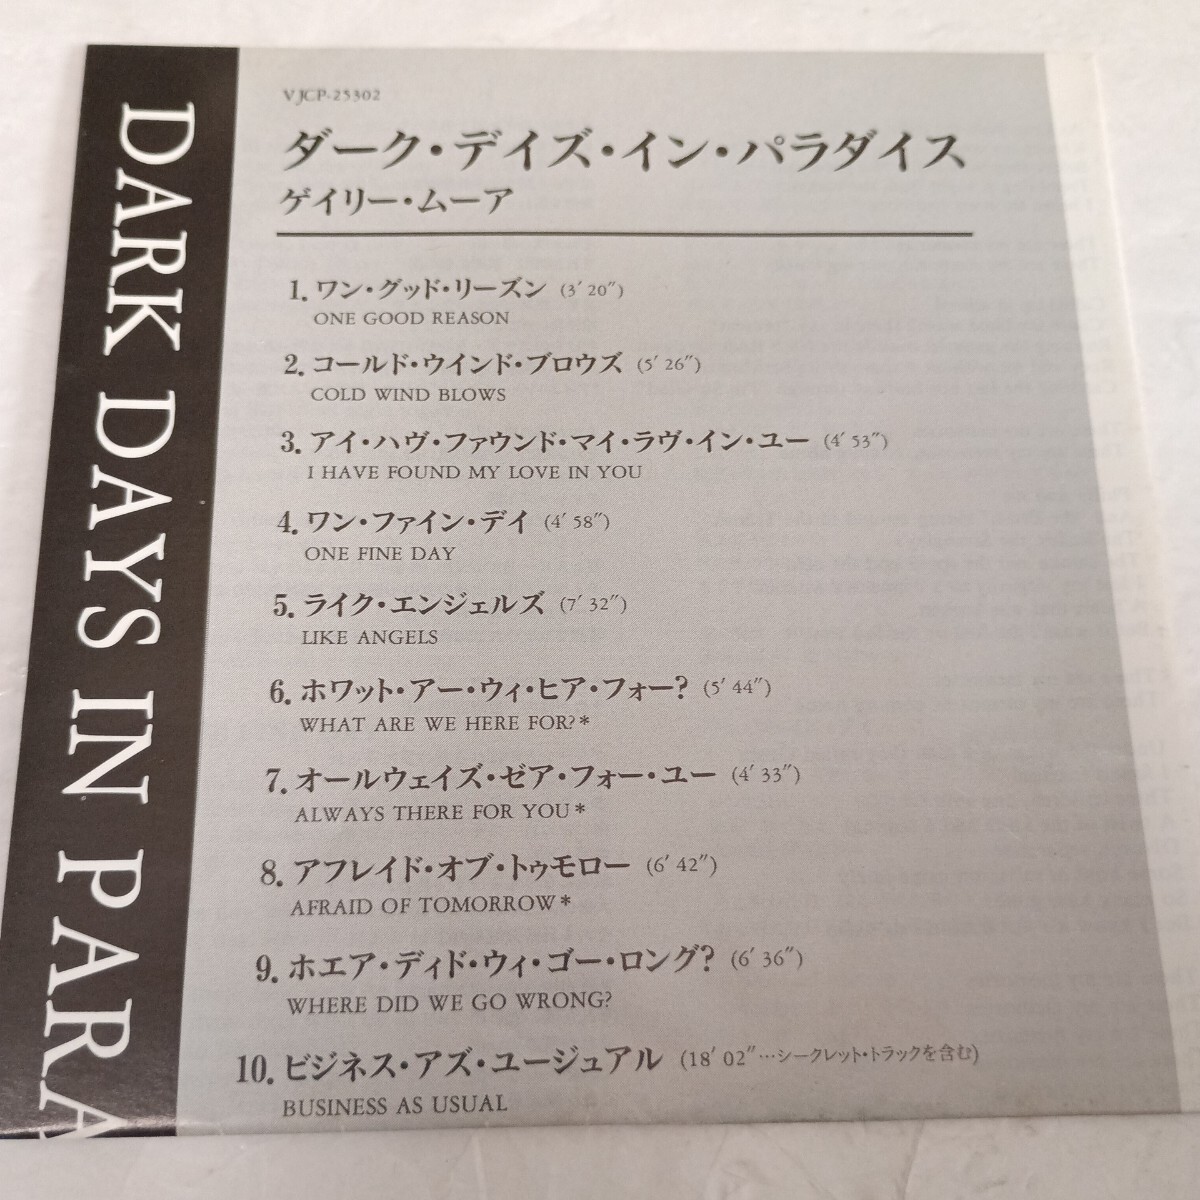 DARK DAYS IN PARA
VJCP-25302
ダーク・デイズ・イン・パラダイス
ゲイリー・ムーア
1. ワン・グッド・リーズン (3′20″)
ONE GOOD REASON
2. コールド・ウインド・ブロウズ (5′26″)
COLD WIND BLOWS
3. アイ・ハヴ・ファウンド・マイ・ラヴ・イン・ユー (4′53″)
I HAVE FOUND MY LOVE IN YOU
4. ワン・ファイン・デイ (4′58″)
ONE FINE DAY
5. ライク・エンジェルズ (7′32″)
LIKE ANGELS
6. ホワット・アー・ウィ・ヒア・フォー? (5′44″)
WHAT ARE WE HERE FOR?*
7. オールウェイズ・ゼア・フォー・ユー (4′33″)
ALWAYS THERE FOR YOU*
8. アフレイド・オブ・トゥモロー (6′42″)
AFRAID OF TOMORROW*
9. ホエア・ディド・ウィ・ゴー・ロング? (6′36″)
WHERE DID WE GO WRONG?
10. ビジネス・アズ・ユージュアル (18′02″…シークレット・トラックを含む)
BUSINESS AS USUAL